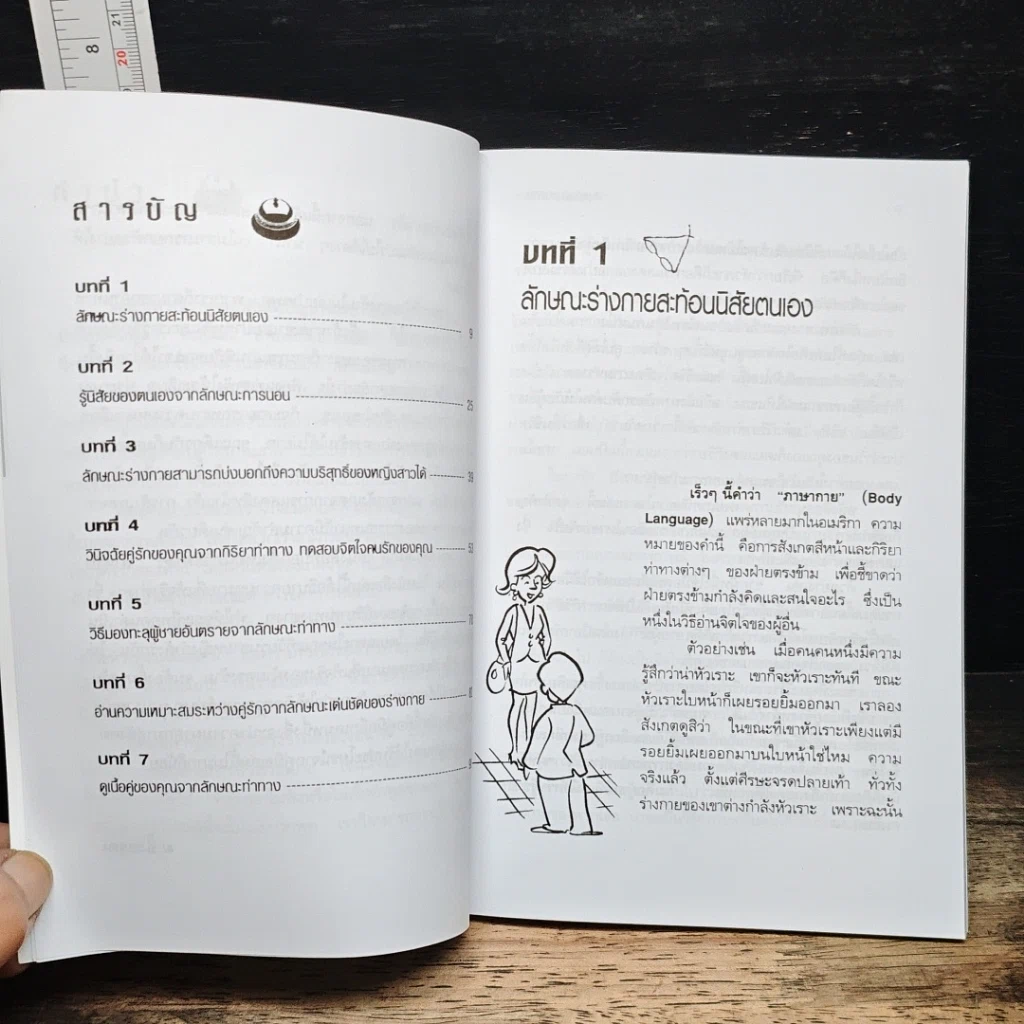 8
21
20
สารบัญ
บทที่ 1
ลักษณะร่างกายสะท้อนนิสัยตนเอง 9
บทที่ 2
รู้นิสัยของตนเองจากลักษณะการนอน 25
บทที่ 3
ลักษณะร่างกายสามารถบ่งบอกถึงความบริสุทธิ์ของหญิงสาวได้ 39
บทที่ 4
วินิจฉัยคู่รักของคุณจากกิริยาท่าทาง ทดสอบจิตใจคนรักของคุณ
บทที่ 5
วิธีมองทะลุผู้ชายอันตรายจากลักษณะท่าทาง
บทที่ 6
อ่านความเหมาะสมระหว่างคู่รักจากลักษณะเด่นชัดของร่างกาย
บทที่ 7
ดูเนื้อคู่ของคุณจากลักษณะท่าทาง
บทที่ 1
ลักษณะร่างกายสะท้อนนิสัยตนเอง
เร็วๆ นี้คำว่า “ภาษากาย” (Body
Language) แพร่หลายมากในอเมริกา ความ
หมายของคำนี้ คือการสังเกตสีหน้าและกิริยา
ท่าทางต่างๆ ของฝ่ายตรงข้าม เพื่อชี้ขาดว่า
ฝ่ายตรงข้ามกำลังคิดและสนใจอะไร ซึ่งเป็น
หนึ่งในวิธีอ่านจิตใจของผู้อื่น
ตัวอย่างเช่น เมื่อคนคนหนึ่งมีความ
รู้สึกว่าน่าหัวเราะ เขาก็จะหัวเราะทันที ขณะ
หัวเราะใบหน้าก็เผยรอยยิ้มออกมา เราลอง
สังเกตดูสิว่า ในขณะที่เขาหัวเราะเพียงแต่มี
รอยยิ้มเผยออกมาบนใบหน้าใช่ไหม ความ
จริงแล้ว ตั้งแต่ศีรษะจรดปลายเท้า ทั่วทั้ง
ร่างกายของเขาต่างกำลังหัวเราะ เพราะฉะนั้น